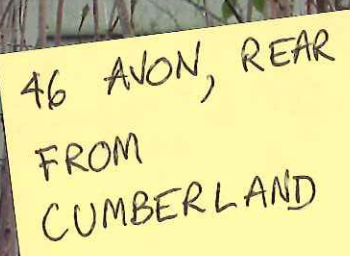 46 AVON, REAR
FROM
CUMBERLAND